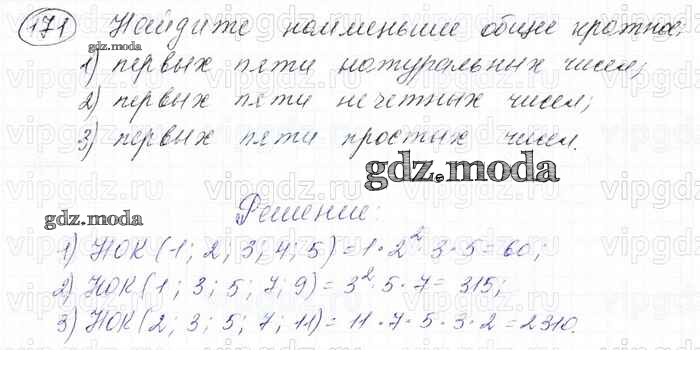 171 Найдите наименьшие общее кратное;
gdz.moda
1) первых пяти натуральных чисел;
2) первых пяти нечетных чисел;
3) первых пяти простых чисел.
gdz.moda
gdz.moda
Решение:
1) НОК (1; 2; 3; 4; 5) = 1 · 2² · 3 · 5 = 60;
2) НОК (1; 3; 5; 7; 9) = 3² · 5 · 7 = 315;
3) НОК (2; 3; 5; 7; 11) = 11 · 7 · 5 · 3 · 2 = 2310.